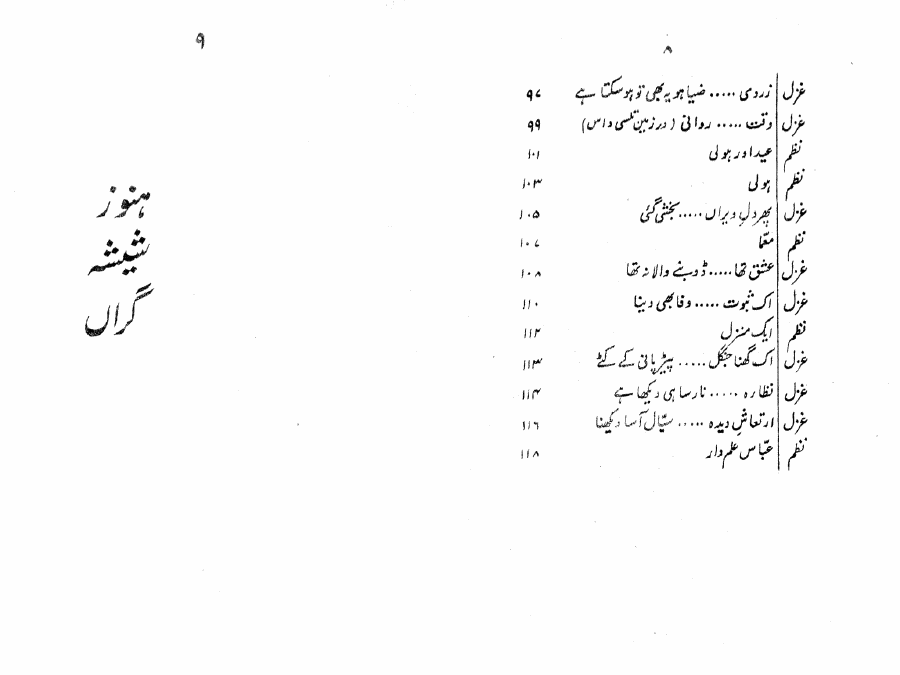 ۸
غزل زردی ..... ضیا ہو یہ بھی تو ہو سکتا ہے ۹۷
غزل وقت ..... روانی (در زمین تلسی داس) ۹۹
نظم عید اور ہولی ۱۰۱
نظم ہولی ۱۰۳
غزل پھر دلِ ویراں ..... بخشی گئی ۱۰۵
نظم معمّا ۱۰۷
غزل عشق تھا ..... ڈوبنے والا نہ تھا ۱۰۸
غزل اک ثبوت ..... وفا بھی دینا ۱۱۰
نظم ایک منزل ۱۱۲
غزل اک گھنا جنگل ..... پیڑ پانی کے کٹے ۱۱۳
غزل نظارہ ..... نارسا ہی دیکھا ہے ۱۱۴
غزل ارتعاشِ دیدہ ..... سیّال آسا دیکھنا ۱۱۶
نظم عبّاس علم دار ۱۱۸
۹
ہنوز
شیشہ
گراں